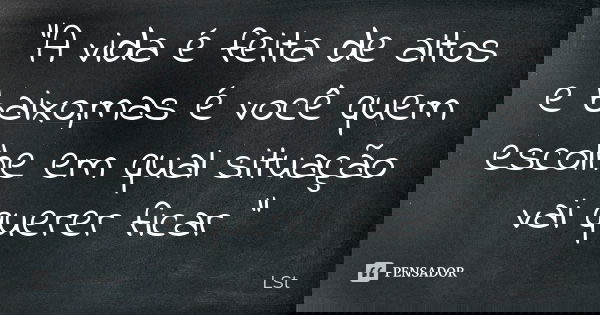 "A vida é feita de altos
e baixo,mas é você quem
escolhe em qual situação
vai querer ficar "
PENSADOR
LSt